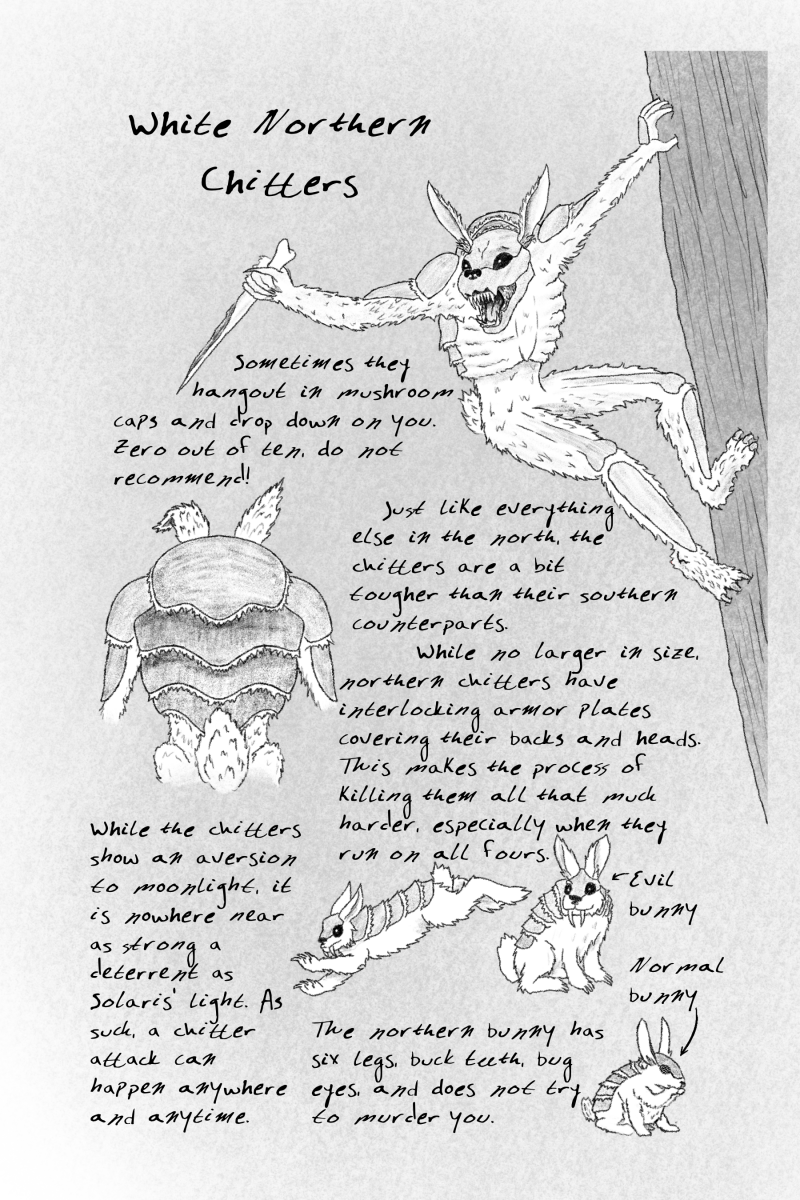 White Northern
Chitters
Sometimes they
hangout in mushroom
caps and drop down on you.
Zero out of ten, do not
recommend!
Just like everything
else in the north, the
chitters are a bit
tougher than their southern
counterparts.
While no larger in size,
northern chitters have
interlocking armor plates
covering their backs and heads.
This makes the process of
killing them all that much
harder, especially when they
run on all fours.
While the chitters
show an aversion
to moonlight, it
is nowhere near
as strong a
deterrent as
Solaris' light. As
such, a chitter
attack can
happen anywhere
and anytime.
Evil
bunny
Normal
bunny
The northern bunny has
six legs, buck teeth, bug
eyes, and does not try
to murder you.